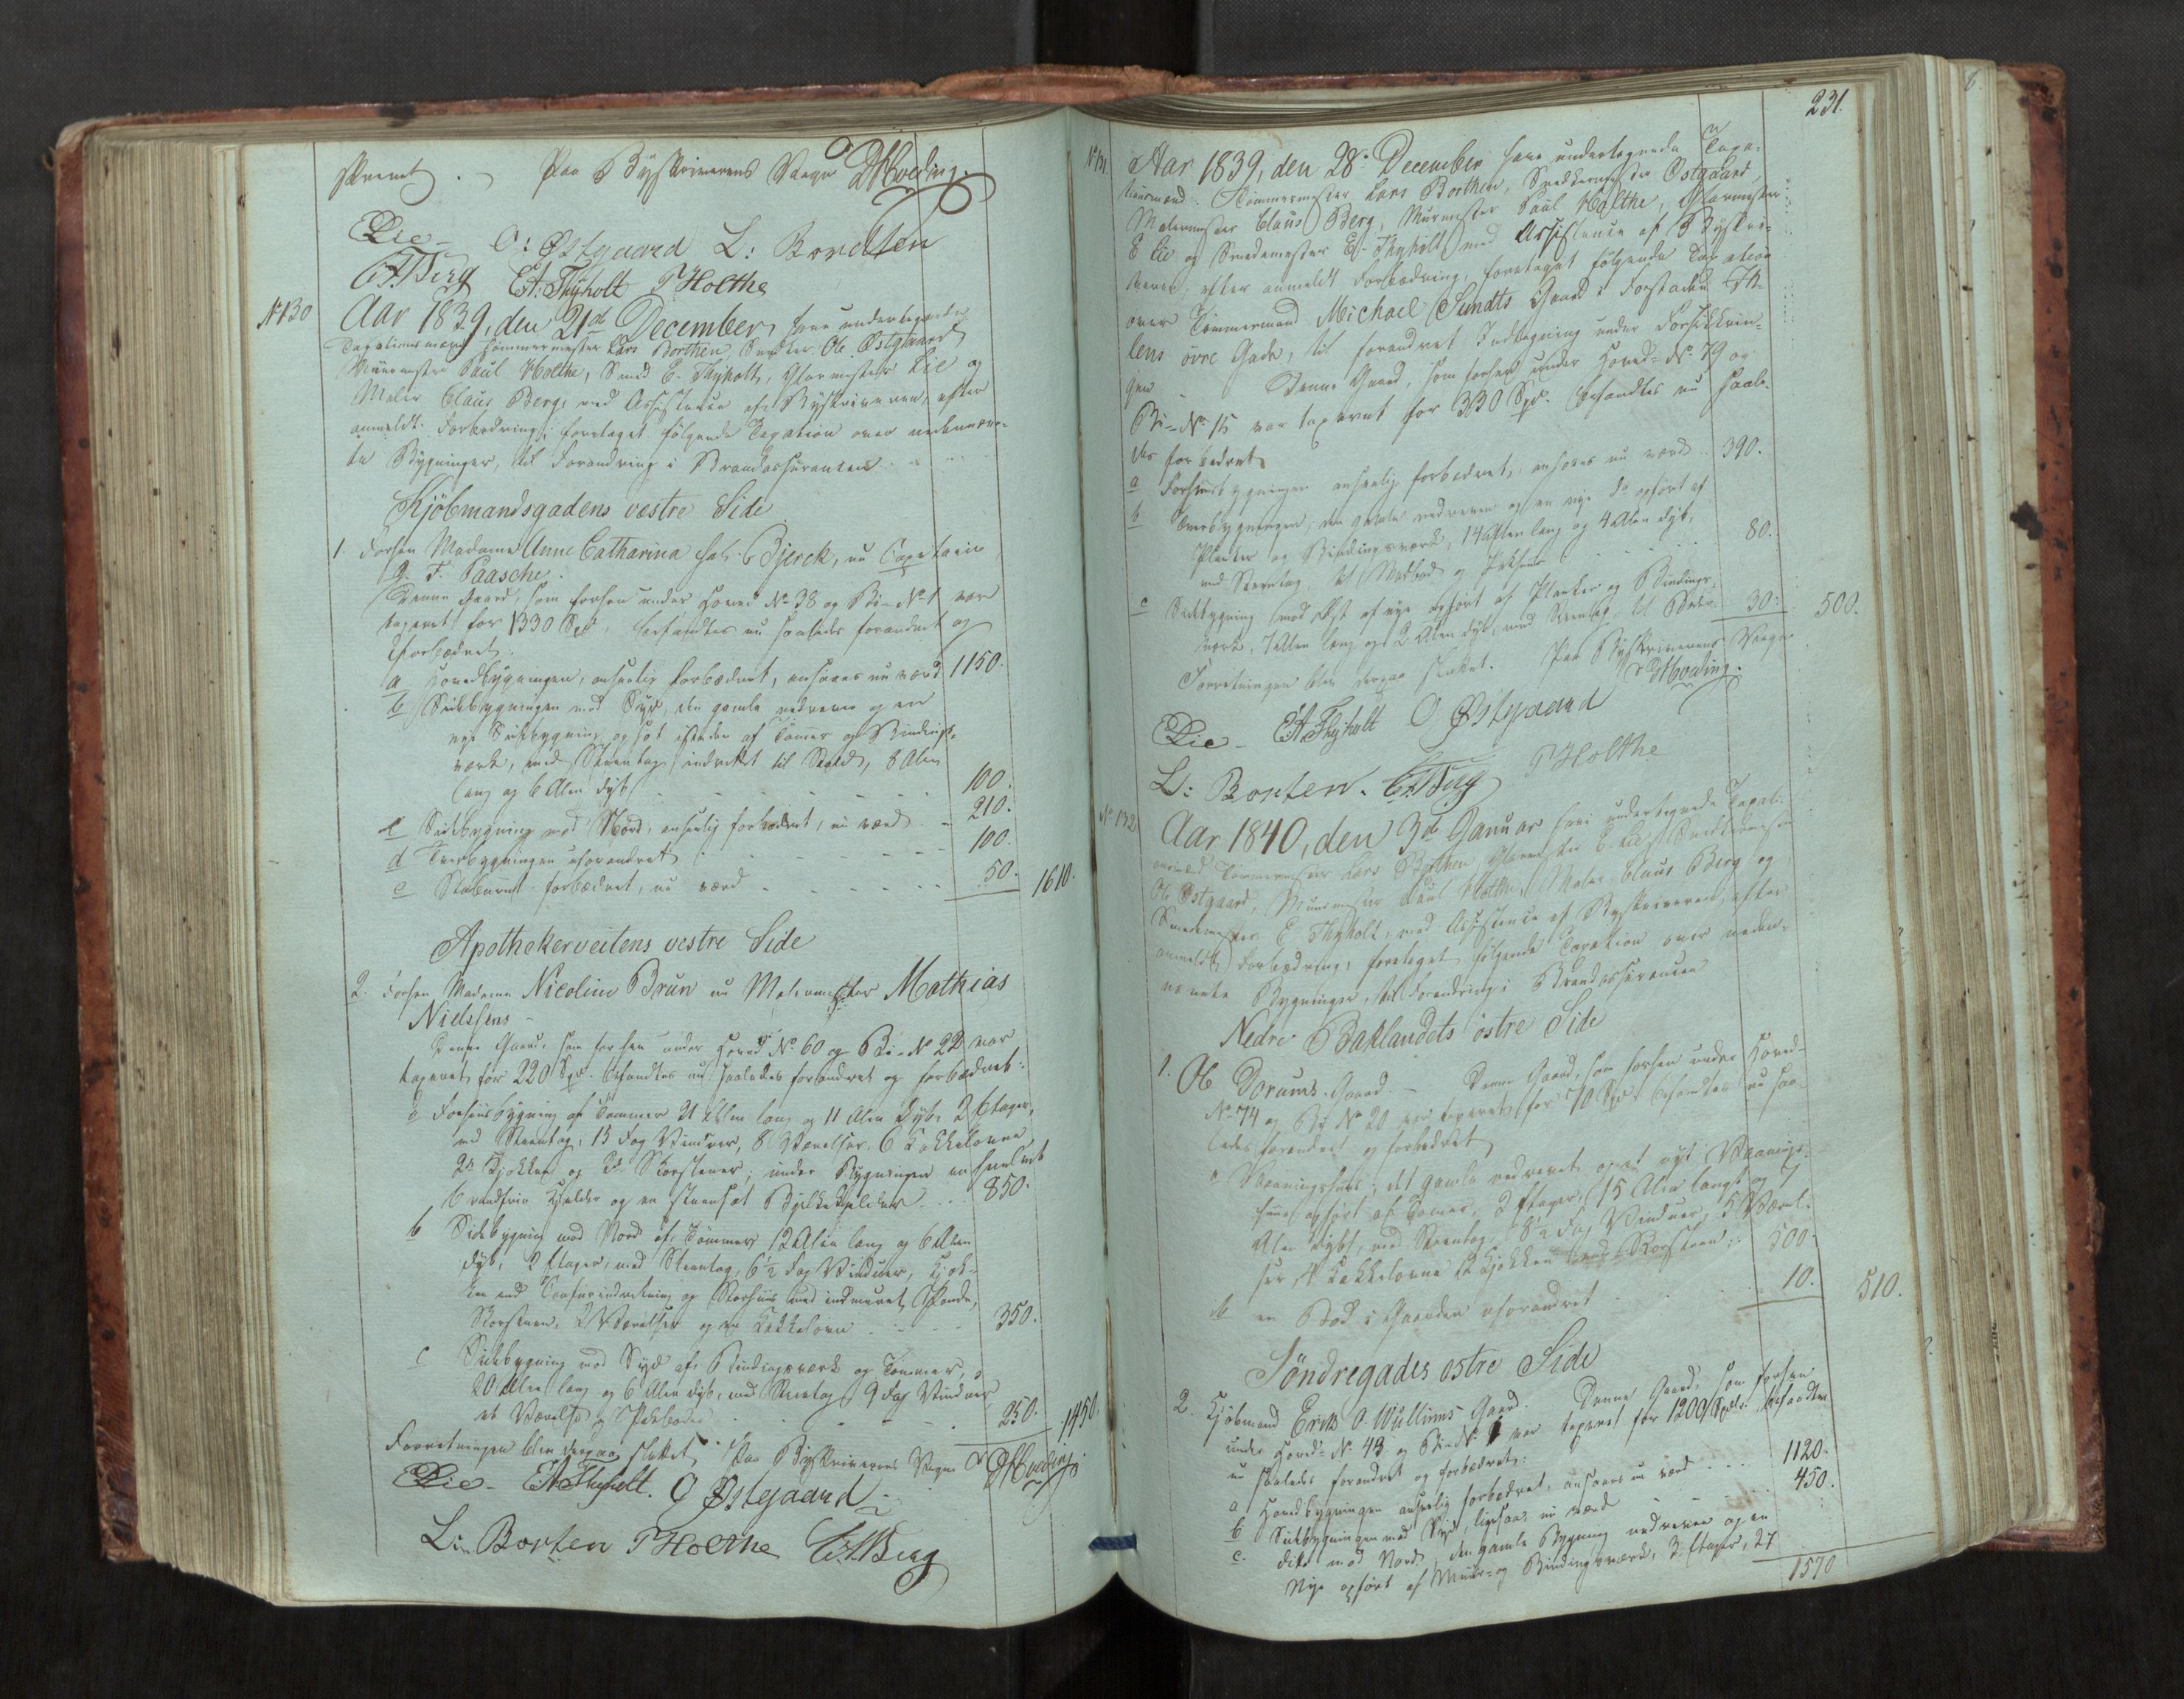 Paa Byskriverens Vegne D Hveding.
CLie - O: Østgaard L: Bordten
CABerg EA. Thyholt PHolthe
No 130 Aar 1839, den 21de December have undertegnede
Taxationsmænd Tømmermester Lars Borthen, Snedker Ole Østgaard
Muurmester Paul Holthe, Smed E. Thyholt, Glarmester Lie og
Maler Claus Berg, med Assistence af Byskriveren, efter
anmeldt Forbedring, foretaget følgende Taxation over nedennævn-
te Bygninger, til Forandring i Brandassurancen
Kjöbmandsgadens vestre Side
1. Forhen Madame Anne Catharina sal. Bjerck, nu Capitain
J. F. Paasche.
Denne Gaard, som forhen under Hoved No 38 og Bi-No 1 var
taxeret for 1330 Spd, befandtes nu saaledes forandret og
forbedret:
a Hovedbygningen, anseelig forbedret, ansaaes nu værd 1150.
b Sidebygningen mod Syd, den gamle nedreven og en
nye Sidebygning opført isteden af Tømer og Bindings-
værk, med Steentag, indrettet til Stald, 8 Alen
lang og 6 Alen dyb 100.
c Sidebygning mod Nord, anseelig forbedret, nu værd 210.
d Tverbygningen uforandret 100.
e Staburet forbedret, nu værd 50. 1610.
Apothekerveitens vestre Side
2. Forhen Madame Nicoline Brun nu Malermester Mathias
Nielsens -
Denne Gaard, som forhen under Hoved No 60 og Bi-No 22 var
taxeret for 220 Spd. befandtes nu saaledes forandret og forbedret:
a Forhuusbygning af Tømmer 21 Alen lang og 11 Alen dyb, 2 Etager,
med Steentag, 15 Fag Vinduer, 8 Værelser, 6 Kakkelovne
2de Kjøkken og 2de Skorstener; under Bygningen en hvælvet
brandfrie Kjelder og en steensat Bjelkekjelder 850.
b Sidebygning mod Nord af Tømmer 12 Alen lang og 6 Alen
dyb, 2 Etager, med Steentag, 6 1/2 Fag Vinduer, Kjøk-
ken med indmuret Pande,
Skorsteen, 2 Værelser og en Kakkelovn 350.
c Sidebygning mod Syd af Bindingsværk og Tømmer,
20 Alen lang og 6 Alen dyb, med Steentag, 9 Fag Vinduer
et Værelse og Pakboder 250. 1450.
Forretningen blev derpaa sluttet. Paa Byskriverens Vegne D Hveding
CLie - EAThyholt. O Østgaard
L: Borten PHolthe CABerg
231.
No 131. Aar 1839, den 28de December have undertegnede Taxa-
tionsmænd: Tømmermester Lars Borthen, Snedkermester Østgaard,
Malermester Claus Berg, Murmester Paul Holthe, Glarmester
C Lie og Smedemester E. Thyholt med Assistence af Byskri-
veren, efter anmeldt Forbedring, foretaget følgende Taxation
over Tømmermand Michael Sundts Gaard i Forstaden Ih-
lens övre Gade, til forandret Indtegning under Forsikkrin-
gen. Denne Gaard, som forhen under Hoved-No 79 og
Bi-No 15 var taxeret for 330 Spd. befandtes nu saale-
des forbedret
a Forhuusbygningen anseelig forbedret, ansaaes nu værd 390.
b Tverbygningen, den gamle nedreven og en nye do opført af
Planker og Bindingsværk, 14 Alen lang og 4 Alen dyb,
med Steentag, til 80.
c Sidebygning mod Øst af nye opført af Planker og Bindings-
værk, 7 Alen lang og 2 Alen dyb, med Steentag, til 30. 500.
Forretningen blev derpaa sluttet. Paa Byskriverens Vegne
D Hveding.
CLie - EAThyholt O Østgaard
L: Borten. CABerg PHolthe
No 132 Aar 1840, den 3de Januar have undertegnede Taxati-
onsmænd Tømmermester Lars Borthen, Glarmester C. Lie, Snedkermester
Ole Østgaard, Muurmester Paul Holthe, Maler Claus Berg og
Smedemester E Thyholt, med Assistence af Byskriveren, efter
anmeldt Forbedring, foretaget følgende Taxation over neden-
nævnte Bygninger, til Forandring i Brandassurancen
Nedre Baklandets östre Side
1. Ole Dorums Gaard - Denne Gaard, som forhen under Hoved-
No 74 og Bi No 20 var taxeret for 70 Spd. befandtes nu saa-
ledes forandret og forbedret
a Vaaningshuus, det gamle nedrevet og et nyt Vaanings-
huus opført af Tømer, 2 Etager, 15 Alen langt og 7
Alen dybt, med Steentag, 8 1/2 Fag Vinduer, 5 Værel-
ser, 4 Kakkelovne, 2 Kjøkken med Skorsteen 500.
b en Bod i Gaarden uforandret 10. 510.
Söndregades östre Side
2. Kjøbmand Erik O. Wullums Gaard. Denne Gaard, som forhen
under Hoved-No 43 og Bi-No 1 var taxeret for 1200 Spd. befandtes
nu saaledes forandret og forbedret:
a Hovedbygningen anseelig forbedret, ansaaes nu værd 1120.
b Sidebygningen mod Syd, ligesaa, nu værd 450.
c. Dito mod Nord, den gamle Bygning nedreven og en
Nye opført af Muur- og Bindingsværk, 3 Etager, 27
1570